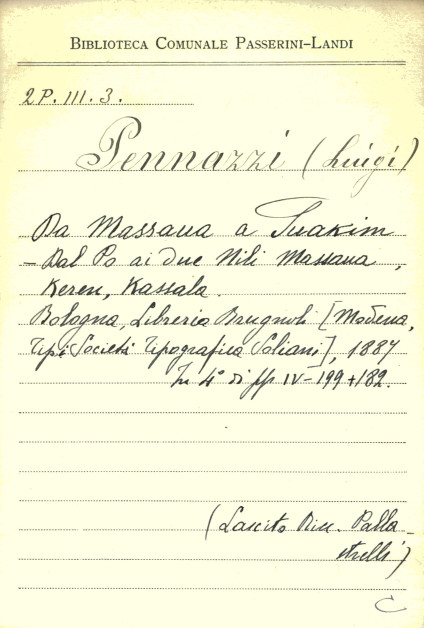 BIBLIOTECA COMUNALE PASSERINI-LANDI
2 P. III. 3.
Pennazzi (Luigi)
Da Massaua a Suakim
- Dal Po ai due Nili Massaua,
Keren, Kassala.
Bologna, Libreria Brugnoli [Modena,
Tipi Società Tipografica Soliani], 1887
In 4° di pp IV-199+182.
(Lascito Palla-
strelli)
C